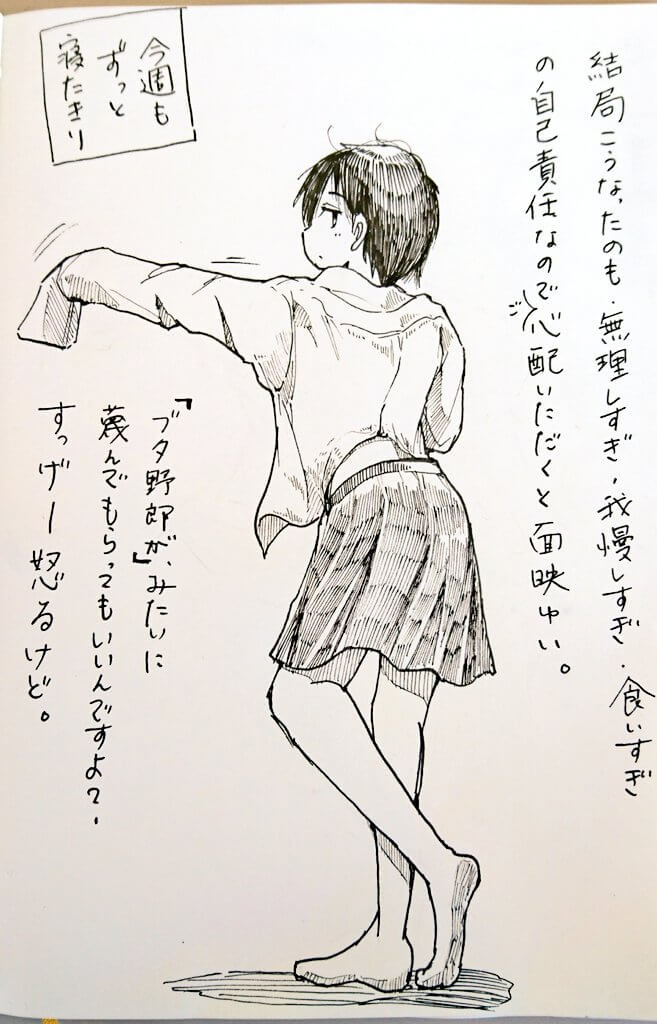 今週も
ずっと
寝たきり
結局こうなったのも・無理しすぎ・我慢しすぎ・食いすぎ
の自己責任なのでご心配いただくと面映ゆい。
「ブタ野郎が」みたいに
蔑んでもらってもいいんですよ?・
すっげー怒るけど。